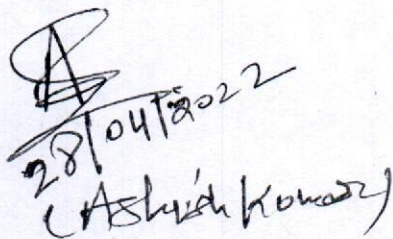 28/04/2022
(Ashish Kumar)